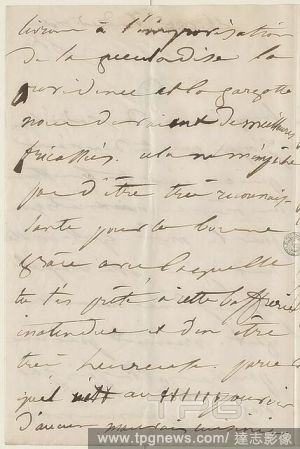 livrone à l'improvisation
de la gueulardise la
providence et la gargotte
nous devraient de meilleures
fricassées. cela ne m'empêche
pas d'être très reconnais
sante pour la bonne
grâce avec laquelle
tu t'es prêté à cette
inattendue et d'en être
très heureuse. parce
qu'el au pouvoir
d'aucun mauvais cuisinier
TPG
www.tpgnews.com / 達志影像